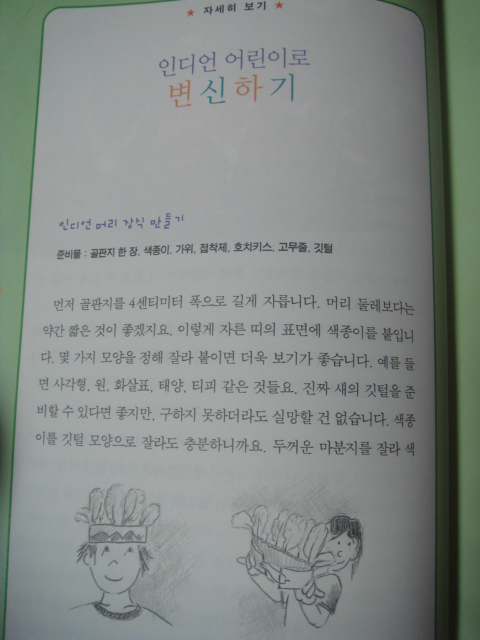 ★ 자세히 보기 ★
인디언 어린이로
변신하기
인디언 머리 장식 만들기
준비물 : 골판지 한 장, 색종이, 가위, 접착제, 호치키스, 고무줄, 깃털
먼저 골판지를 4센티미터 폭으로 길게 자릅니다. 머리 둘레보다는
약간 짧은 것이 좋겠지요. 이렇게 자른 띠의 표면에 색종이를 붙입니
다. 몇 가지 모양을 정해 잘라 붙이면 더욱 보기가 좋습니다. 예를 들
면 사각형, 원, 화살표, 태양, 티피 같은 것들요. 진짜 새의 깃털을 준
비할 수 있다면 좋지만, 구하지 못하더라도 실망할 건 없습니다. 색종
이를 깃털 모양으로 잘라도 충분하니까요. 두꺼운 마분지를 잘라 색